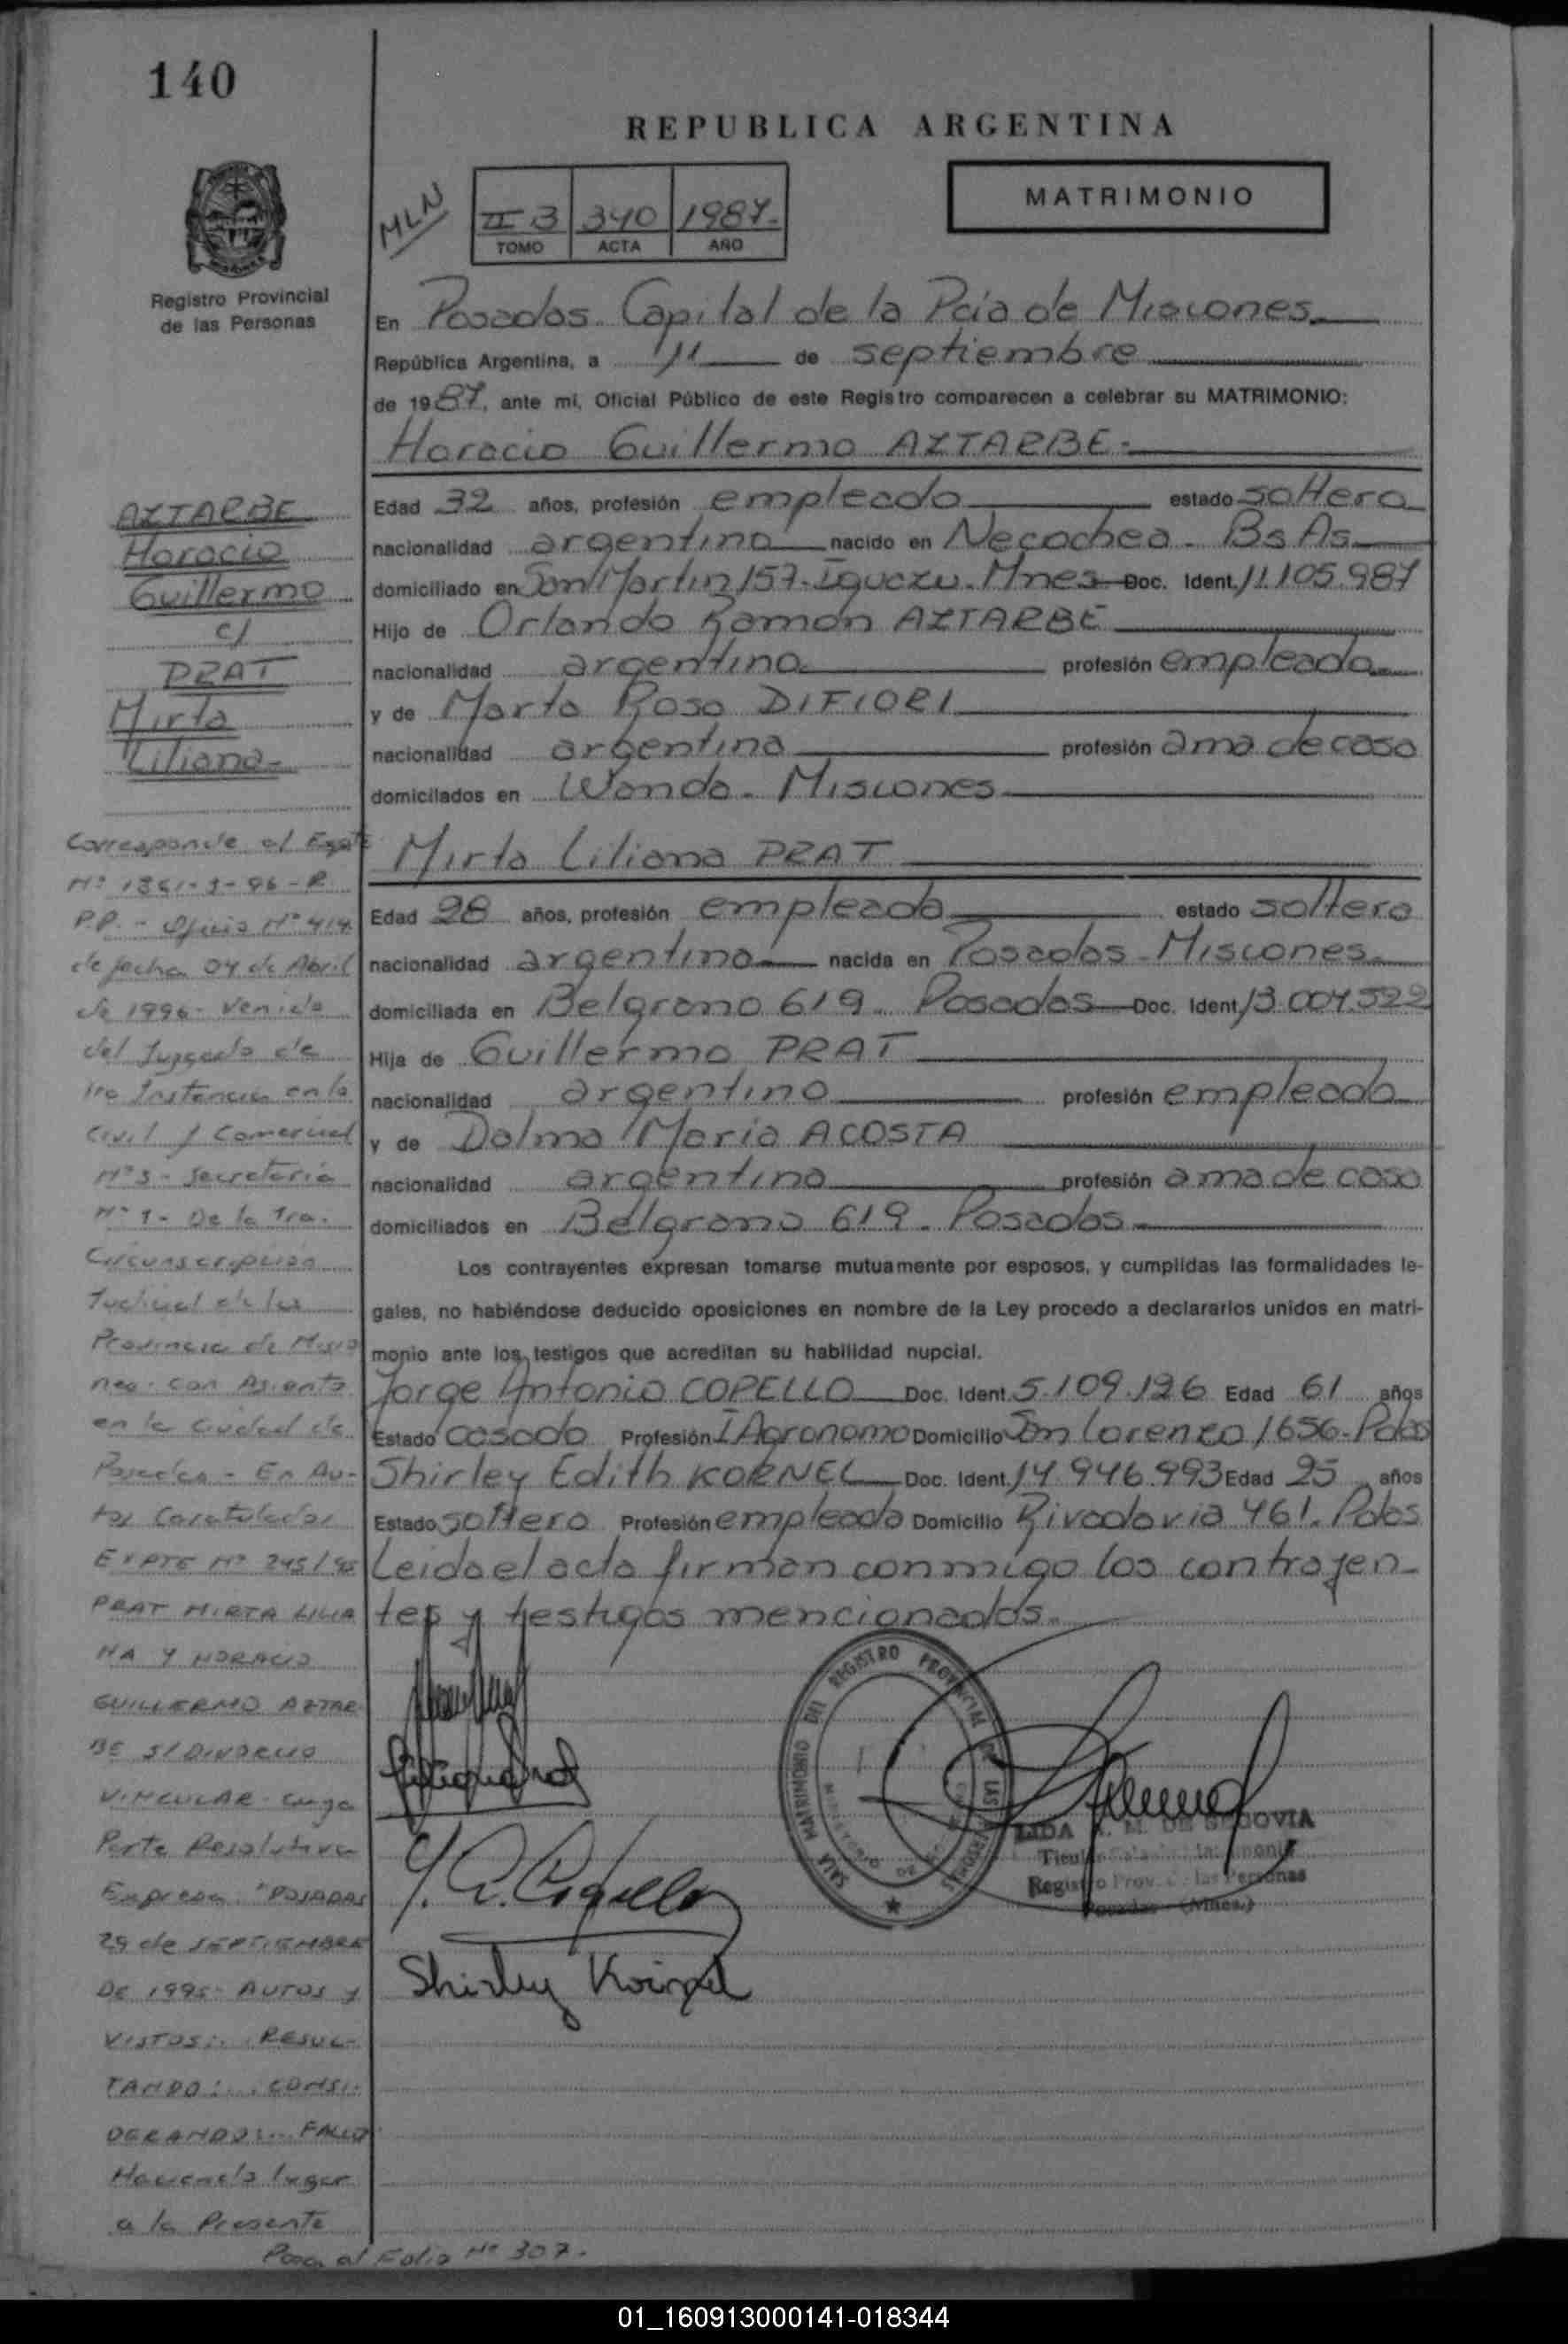 140
REPUBLICA ARGENTINA
MLN
II B 340 1987.-
TOMO ACTA AÑO
MATRIMONIO
Registro Provincial
de las Personas
En Posadas. Capital de la Pcia de Misiones.
República Argentina, a 11 de septiembre
de 1987, ante mi, Oficial Público de este Registro comparecen a celebrar su MATRIMONIO:
Horacio Guillermo AZTARBE.
Edad 32 años, profesión empleado estado soltero
nacionalidad argentino nacido en Necochea. Bs As
domiciliado en San Martin 157. Iguazu. Mnes Doc. Ident. 11.105.987
Hijo de Orlando Ramon AZTARBE
nacionalidad argentino profesión empleado
y de Marta Rosa DIFIORI
nacionalidad argentina profesión ama de casa
domicilados en Wanda. Misiones
Mirta Liliana PRAT
Edad 28 años, profesión empleada estado soltera
nacionalidad argentina nacida en Posadas - Misiones.
domiciliada en Belgrano 619. Posadas Doc. Ident. 13.004.522
Hija de Guillermo PRAT
nacionalidad argentino profesión empleado
y de Dalma Maria ACOSTA
nacionalidad argentina profesión ama de casa
domiciliados en Belgrano 619. Posadas
Los contrayentes expresan tomarse mutuamente por esposos, y cumplidas las formalidades le-
gales, no habiéndose deducido oposiciones en nombre de la Ley procedo a declararlos unidos en matri-
monio ante los testigos que acreditan su habilidad nupcial.
Jorge Antonio COPELLO Doc. Ident. 5.109.126 Edad 61 años
Estado casado Profesión I Agronomo Domicilio San Lorenzo 1656. Pdas
Shirley Edith KORNEL Doc. Ident. 14.946.993 Edad 25 años
Estado soltera Profesión empleada Domicilio Rivadavia 461. Pdas
Leida el acta firman conmigo los contrayen-
tes y testigos mencionados.
SALA MATRIMONIO DEL REGISTRO PROVINCIAL DE LAS PERSONAS
LIDA A. M. DE SEGOVIA
Registro Prov. de las Personas
Posadas (Mnes.)
Shirley Kornel
AZTARBE
Horacio
Guillermo
c/
PRAT
Mirta
Liliana-
Corresponde al Expte
Nº 1861-3-96-R
P.P. - Oficio Nº 414
de fecha 04 de Abril
de 1996- Venido
del Juzgado de
1ra Instancia en lo
Civil y Comercial
Nº 3 - Secretaria
Nº 1 - De la 1ra.
Circunscripción
Judicial de la
Provincia de Misio
nes- con Asiento
en la Ciudad de
Posadas - En Au-
tos Caratulados
EXPTE Nº 245/95
PRAT MIRTA LILIA
NA Y HORACIO
GUILLERMO AZTAR
BE S/ DIVORCIO
VINCULAR- cuya
Parte Resolutiva
Expresa: "POSADAS
29 de SEPTIEMBRE
DE 1995- AUTOS Y
VISTOS:.. RESUL-
TANDO:... CONSI-
DERANDO:... FALLO
Haciendo lugar
a la Presente
Pasa al Folio Nº 307.
01_160913000141-018344